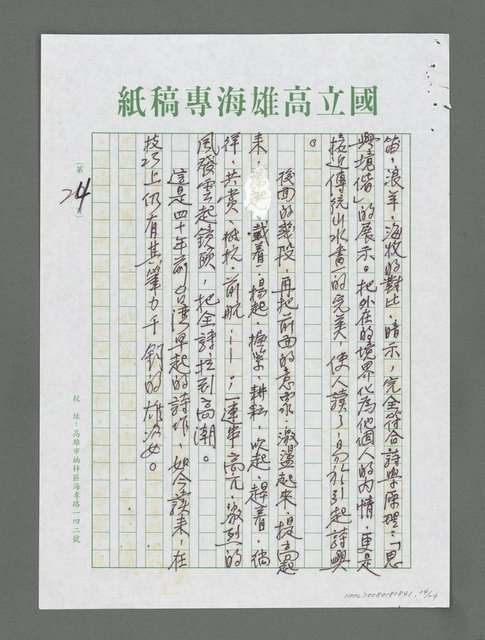 國立高雄海專稿紙
笛，浪羊，海牧的對比，暗示，完全符合詩學原理：「思
與境偕」的展示。把外在的境界化為他個人的內情，更是
接近傳統山水畫的完美，使人讀了，易於引起詩興
。
後面的幾段，再把前面的意象，激盪起來，提高起
來，戴着，揚起，擔當，耕耘，吹起，趕着，徜
徉，共賞，抵抗，前航……，一連串高亢，激烈的
風發雲起鏡頭，把全詩拉到高潮。
這是四十年前台灣早起的詩作，如今讀來，在
技巧上仍有其筆力千鈞的雄渾。
(第24頁)
校 址：高雄市楠梓區海專路一四二號
NMTL20080181841, 24/24